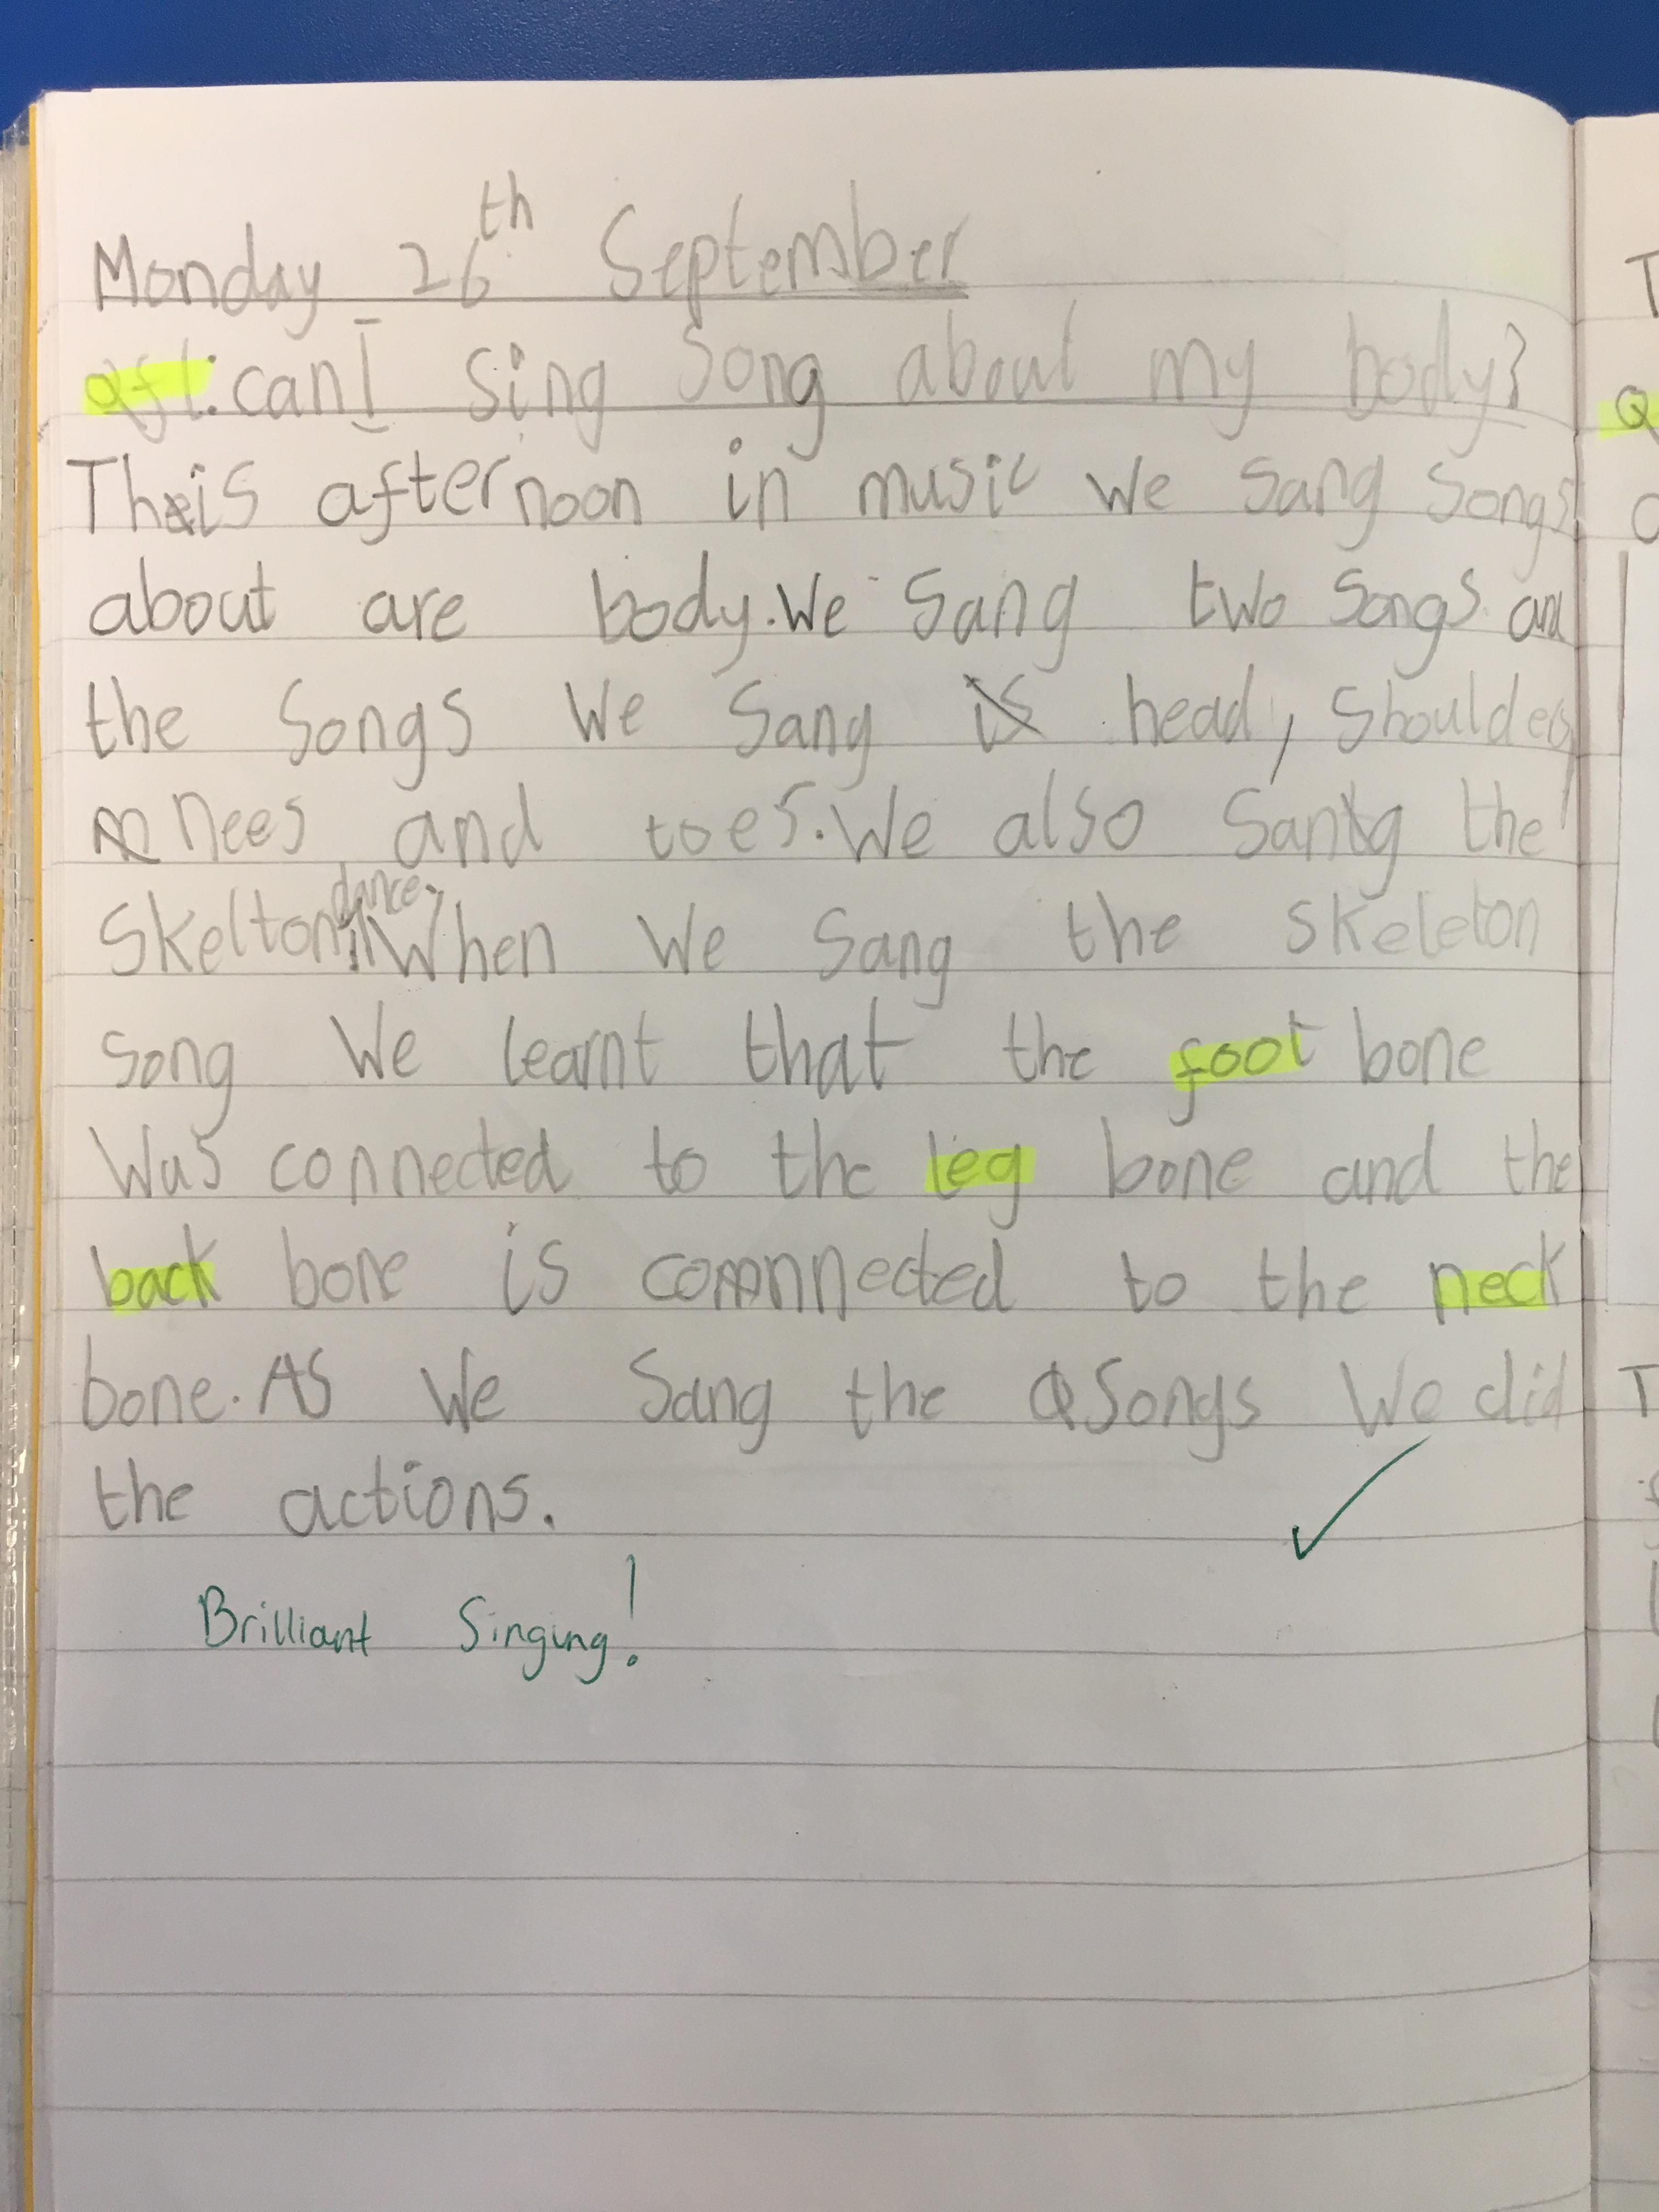 Monday 26th September
Qfl: can I sing song about my body?
This afternoon in music we sang songs
about are body. We sang two songs and
the songs we sang is head, shoulders,
nees and toes. We also sang the
Skelton dance. When we sang the skeleton
song we learnt that the foot bone
was connected to the leg bone and the
back bone is connnected to the neck
bone. As we sang the songs we did
the actions.
Brilliant Singing!